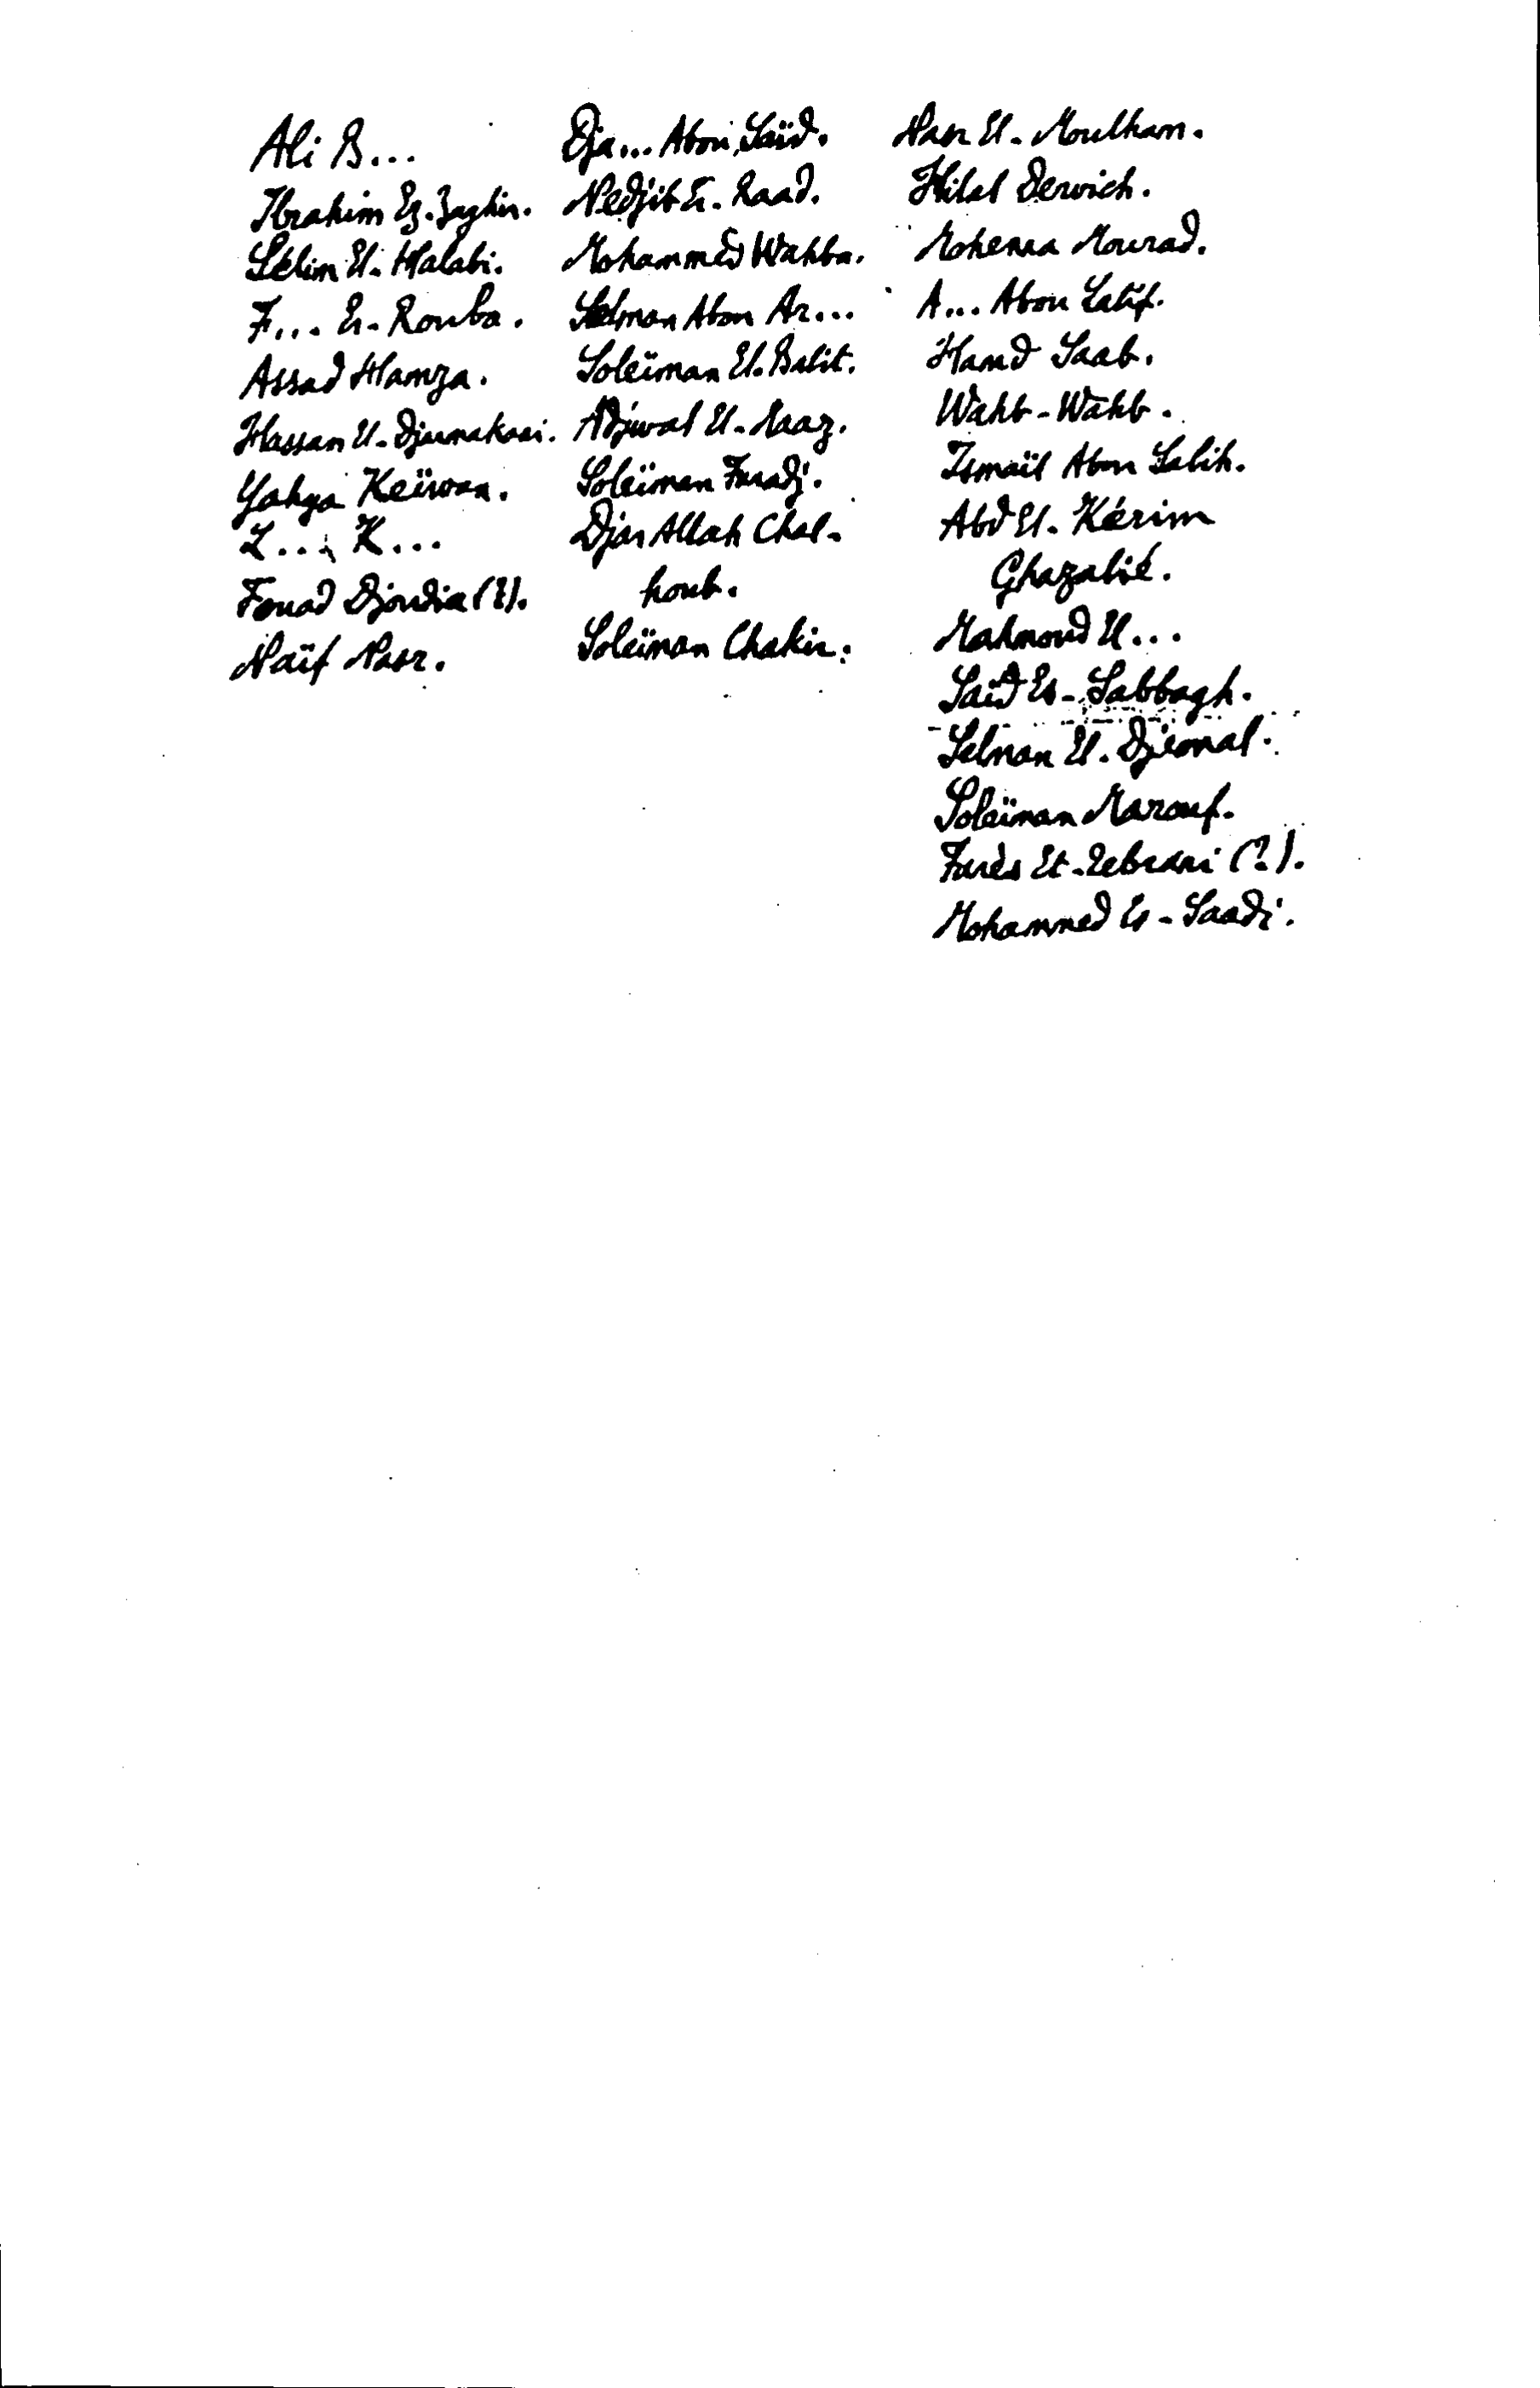 Ali B...
Ibrahim Ez-Zaghir.
Sélim El-Halabi.
F... Er-Rouba.
Assad Hamza.
Hassan El-
Yahya Keïwan.
Z... K...
Fouad Djoudia (?).
Naïf Nasr.
Dja... Abou Saïd.
Nedjib Er-Raad.
Mohammed Wahba.
Selman Abou Ar...
Soleïman El-Balit.
Adjwad El-Maaz.
Soleïman Faradj.
Djar Allah Chal-
houb.
Soleïman Chakir.
Nasr El-Moulham.
Hilal Derwich.
Mohenna Mourad.
A... Abou Latif.
Hamd Saab.
Wahb-Wahb.
Ismaïl Abou Salih.
Abd El-Kérim
Ghazalié.
Mahmoud El...
Saïd Es-Sabbagh.
Selman El-Djemal.
Soleïman Marouf.
Farès Et- (?).
Mohammed Es-Saadi.